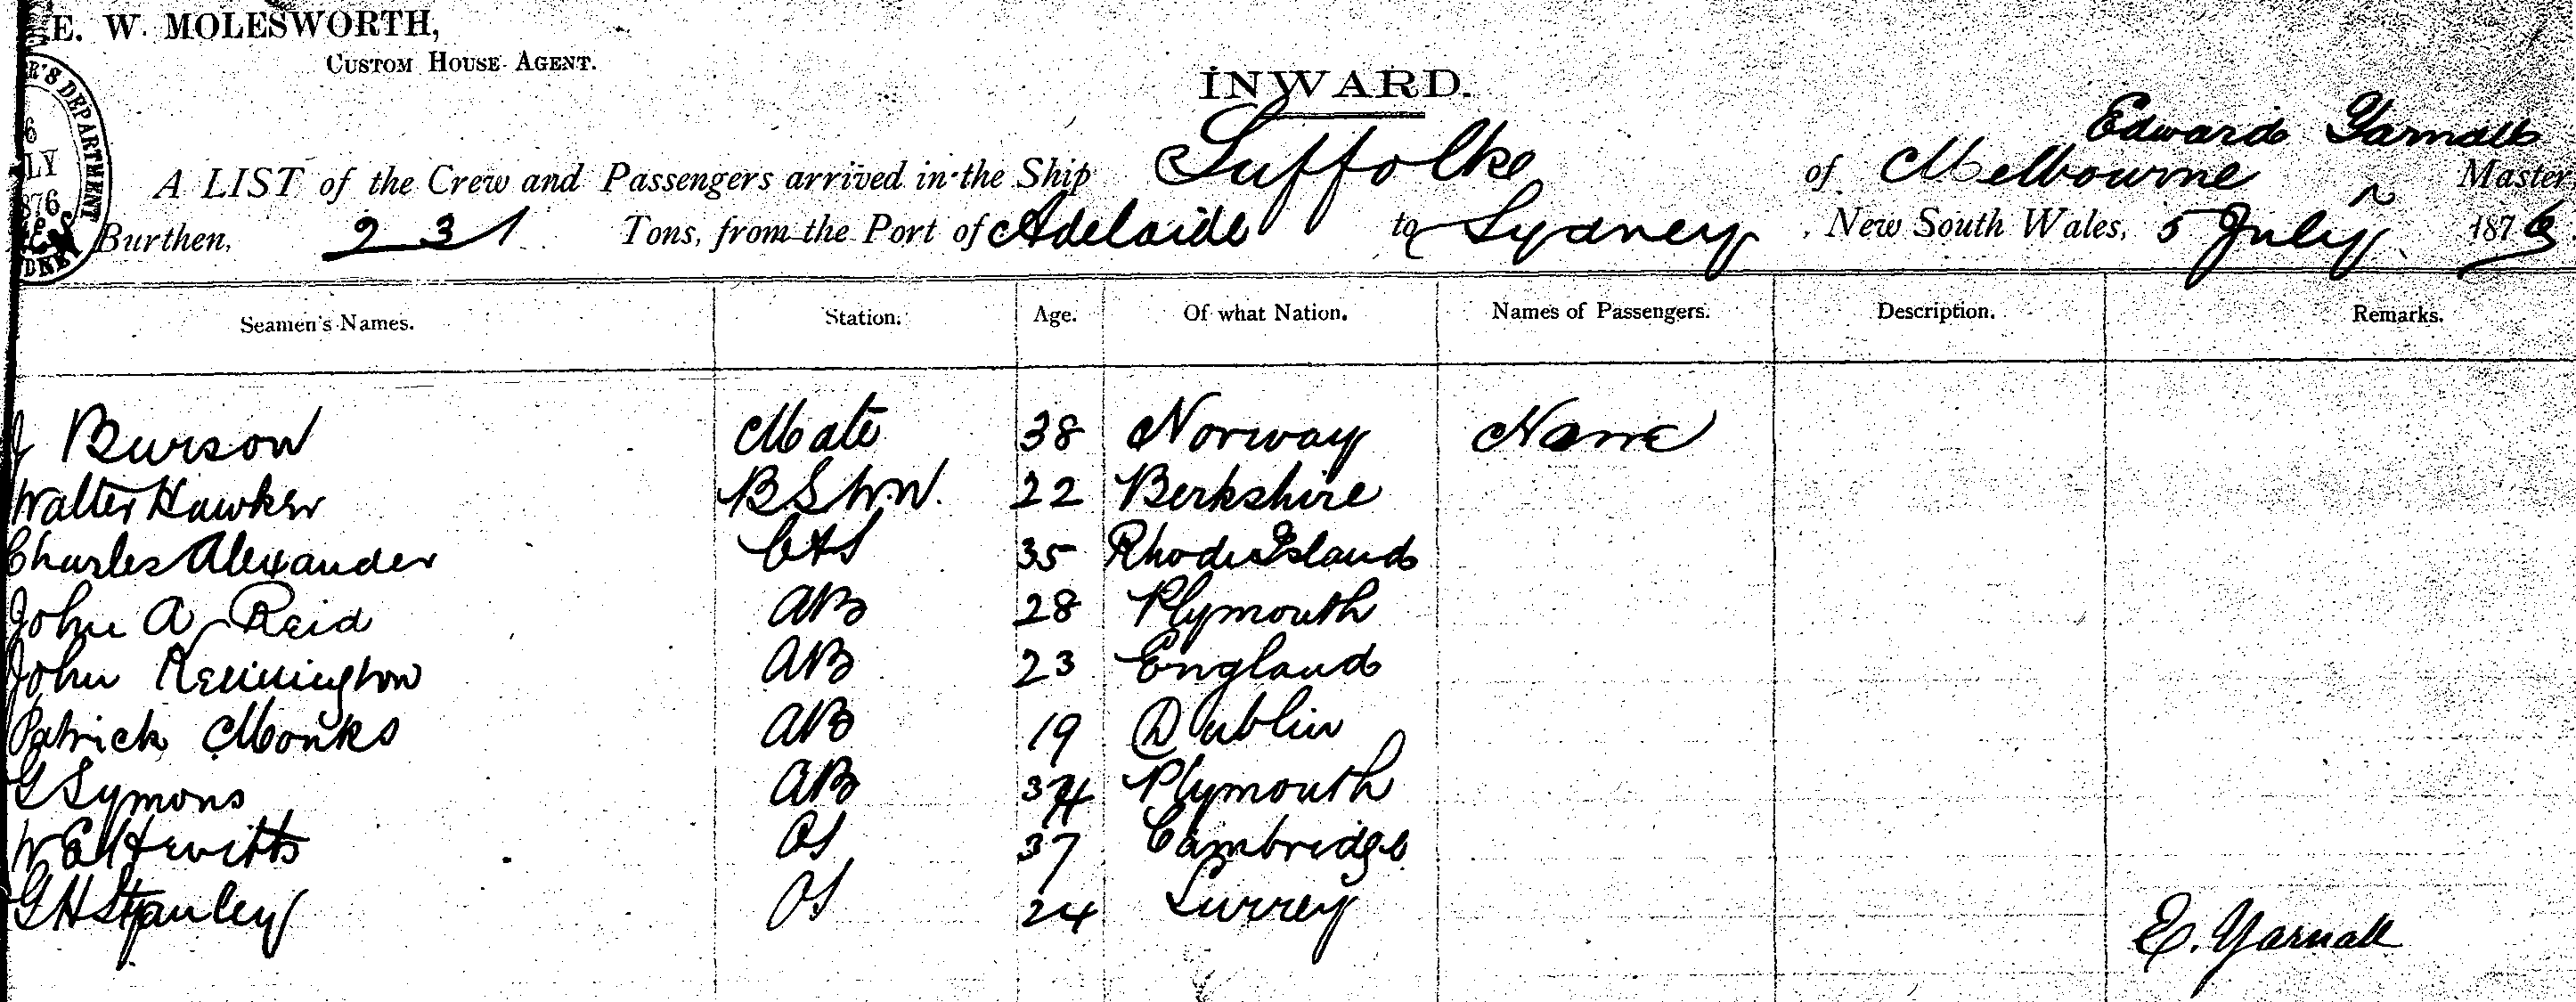 E. W. MOLESWORTH,
CUSTOM HOUSE AGENT.
INWARD.
R'S DEPARTMENT
6
LY
876
DNEY
Edward Yarnall
A LIST of the Crew and Passengers arrived in the Ship Suffolke of Melbourne Master
Burthen, 231 Tons, from the Port of Adelaide to Sydney, New South Wales, 5 July 1876
Seamen's Names. Station. Age. Of what Nation. Names of Passengers. Description. Remarks.
J Burson Mate 38 Norway None
Walter Hawker BSWN. 22 Berkshire
Charles Alexander C&S 35 Rhode Island
John A Reid AB 28 Plymouth
John Kennington AB 23 England
Patrick Monks AB 19 Dublin
G Symons AB Plymouth
W E Hewitts OS 37 Cambridge
G H Stanley OS 24 Surrey
E. Yarnall